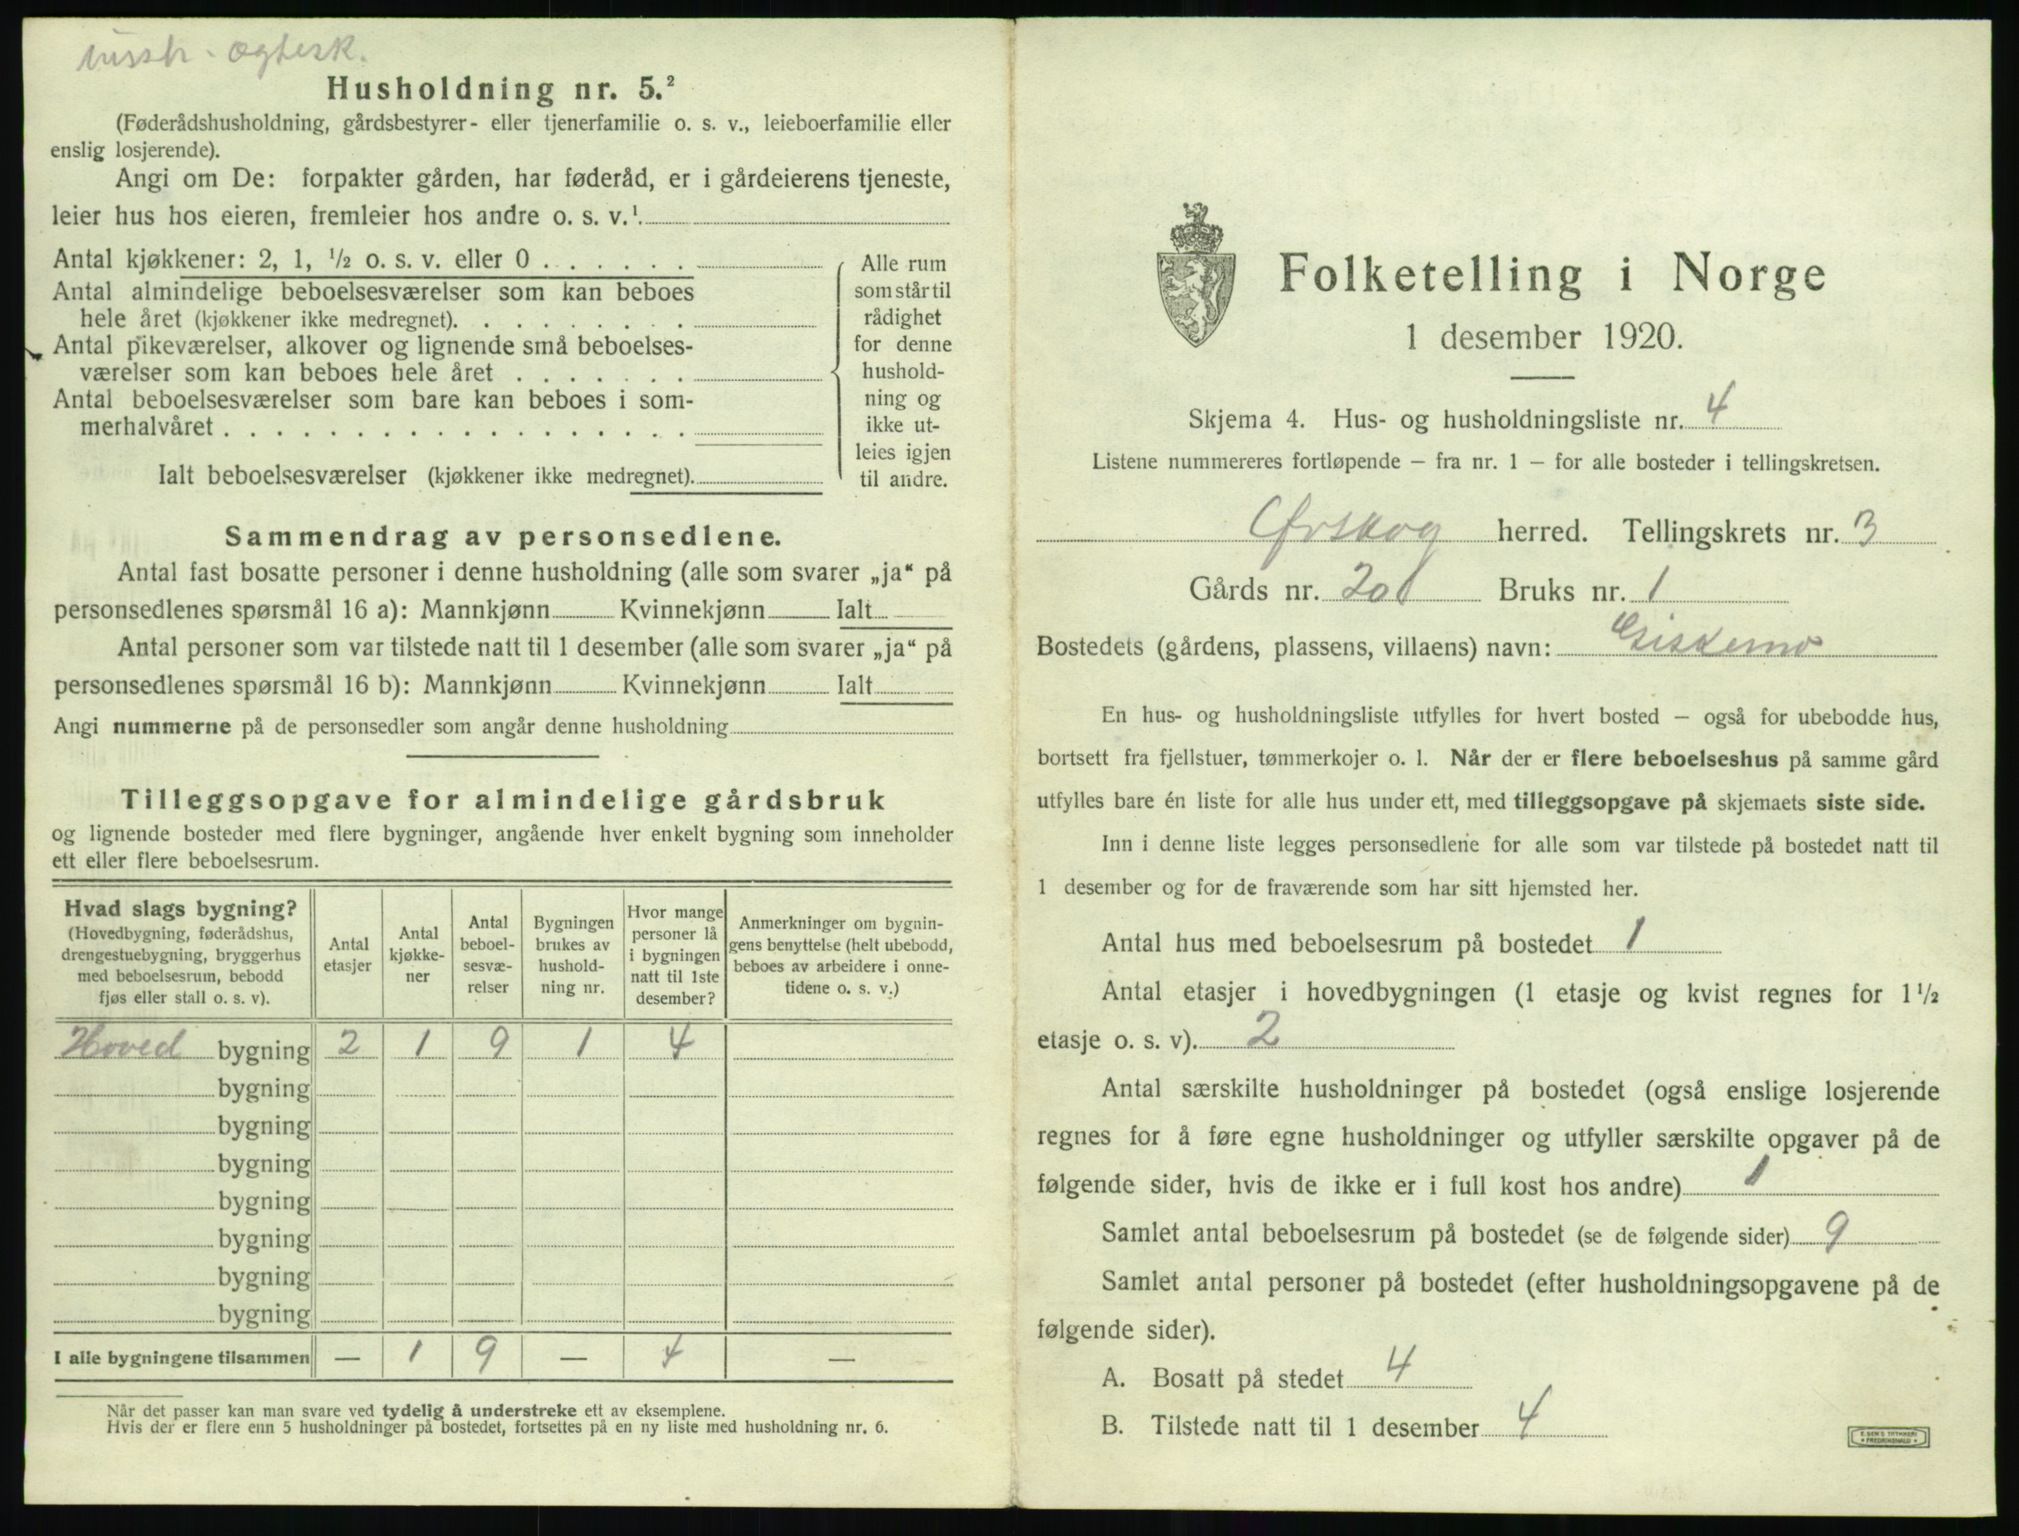 ægtesk.
Husholdning nr. 5.²
(Føderådshusholdning, gårdsbestyrer- eller tjenerfamilie o. s. v., leieboerfamilie eller
enslig losjerende).
Angi om De: forpakter gården, har føderåd, er i gårdeierens tjeneste,
leier hus hos eieren, fremleier hos andre o. s. v.¹
Antal kjøkkener: 2, 1, ½ o. s. v. eller 0 . . . . . .
Antal almindelige beboelsesværelser som kan beboes
hele året (kjøkkener ikke medregnet). . . . . . . . .
Antal pikeværelser, alkover og lignende små beboelses-
værelser som kan beboes hele året . . . . . . .
Antal beboelsesværelser som bare kan beboes i som-
merhalvåret . . . . . . . . . . . . . . . . . .
Ialt beboelsesværelser (kjøkkener ikke medregnet).
Alle rum
som står til
rådighet
for denne
hushold-
ning og
ikke ut-
leies igjen
til andre.
Sammendrag av personsedlene.
Antal fast bosatte personer i denne husholdning (alle som svarer „ja“ på
personsedlenes spørsmål 16 a): Mannkjønn Kvinnekjønn Ialt
Antal personer som var tilstede natt til 1 desember (alle som svarer „ja“ på
personsedlenes spørsmål 16 b): Mannkjønn Kvinnekjønn Ialt
Angi nummerne på de personsedler som angår denne husholdning
Tilleggsopgave for almindelige gårdsbruk
og lignende bosteder med flere bygninger, angående hver enkelt bygning som inneholder
ett eller flere beboelsesrum.
Hvad slags bygning?
(Hovedbygning, føderådshus,
drengestuebygning, bryggerhus
med beboelsesrum, bebodd
fjøs eller stall o. s. v).
Antal
etasjer
Antal
kjøkke-
ner
Antal
beboel-
sesvæ-
relser
Bygningen
brukes av
hushold-
ning nr.
Hvor mange
personer lå
i bygningen
natt til 1ste
desember?
Anmerkninger om bygnin-
gens benyttelse (helt ubebodd,
beboes av arbeidere i onne-
tidene o. s. v.)
Hoved bygning 2 1 9 1 4
bygning
bygning
bygning
bygning
bygning
bygning
bygning
I alle bygningene tilsammen — 1 9 — 4 —
Når det passer kan man svare ved tydelig å understreke ett av eksemplene.
Hvis der er flere enn 5 husholdninger på bostedet, fortsettes på en ny liste med husholdning nr. 6.
Folketelling i Norge
1 desember 1920.
Skjema 4. Hus- og husholdningsliste nr. 4
Listene nummereres fortløpende — fra nr. 1 — for alle bosteder i tellingskretsen.
Ørskog herred. Tellingskrets nr. 3
Gårds nr. 201 Bruks nr. 1
Bostedets (gårdens, plassens, villaens) navn: Giskemo
En hus- og husholdningsliste utfylles for hvert bosted — også for ubebodde hus,
bortsett fra fjellstuer, tømmerkojer o. l. Når der er flere beboelseshus på samme gård
utfylles bare én liste for alle hus under ett, med tilleggsopgave på skjemaets siste side.
Inn i denne liste legges personsedlene for alle som var tilstede på bostedet natt til
1 desember og for de fraværende som har sitt hjemsted her.
Antal hus med beboelsesrum på bostedet 1
Antal etasjer i hovedbygningen (1 etasje og kvist regnes for 1½
etasje o. s. v). 2
Antal særskilte husholdninger på bostedet (også enslige losjerende
regnes for å føre egne husholdninger og utfyller særskilte opgaver på de
følgende sider, hvis de ikke er i full kost hos andre) 1
Samlet antal beboelsesrum på bostedet (se de følgende sider) 9
Samlet antal personer på bostedet (efter husholdningsopgavene på de
følgende sider).
A. Bosatt på stedet 4
B. Tilstede natt til 1 desember 4